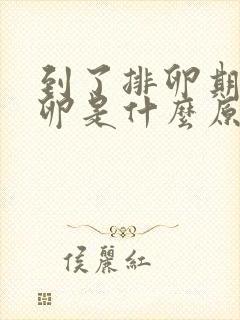 到了排卵期
卵是什麼原
侯麗紅